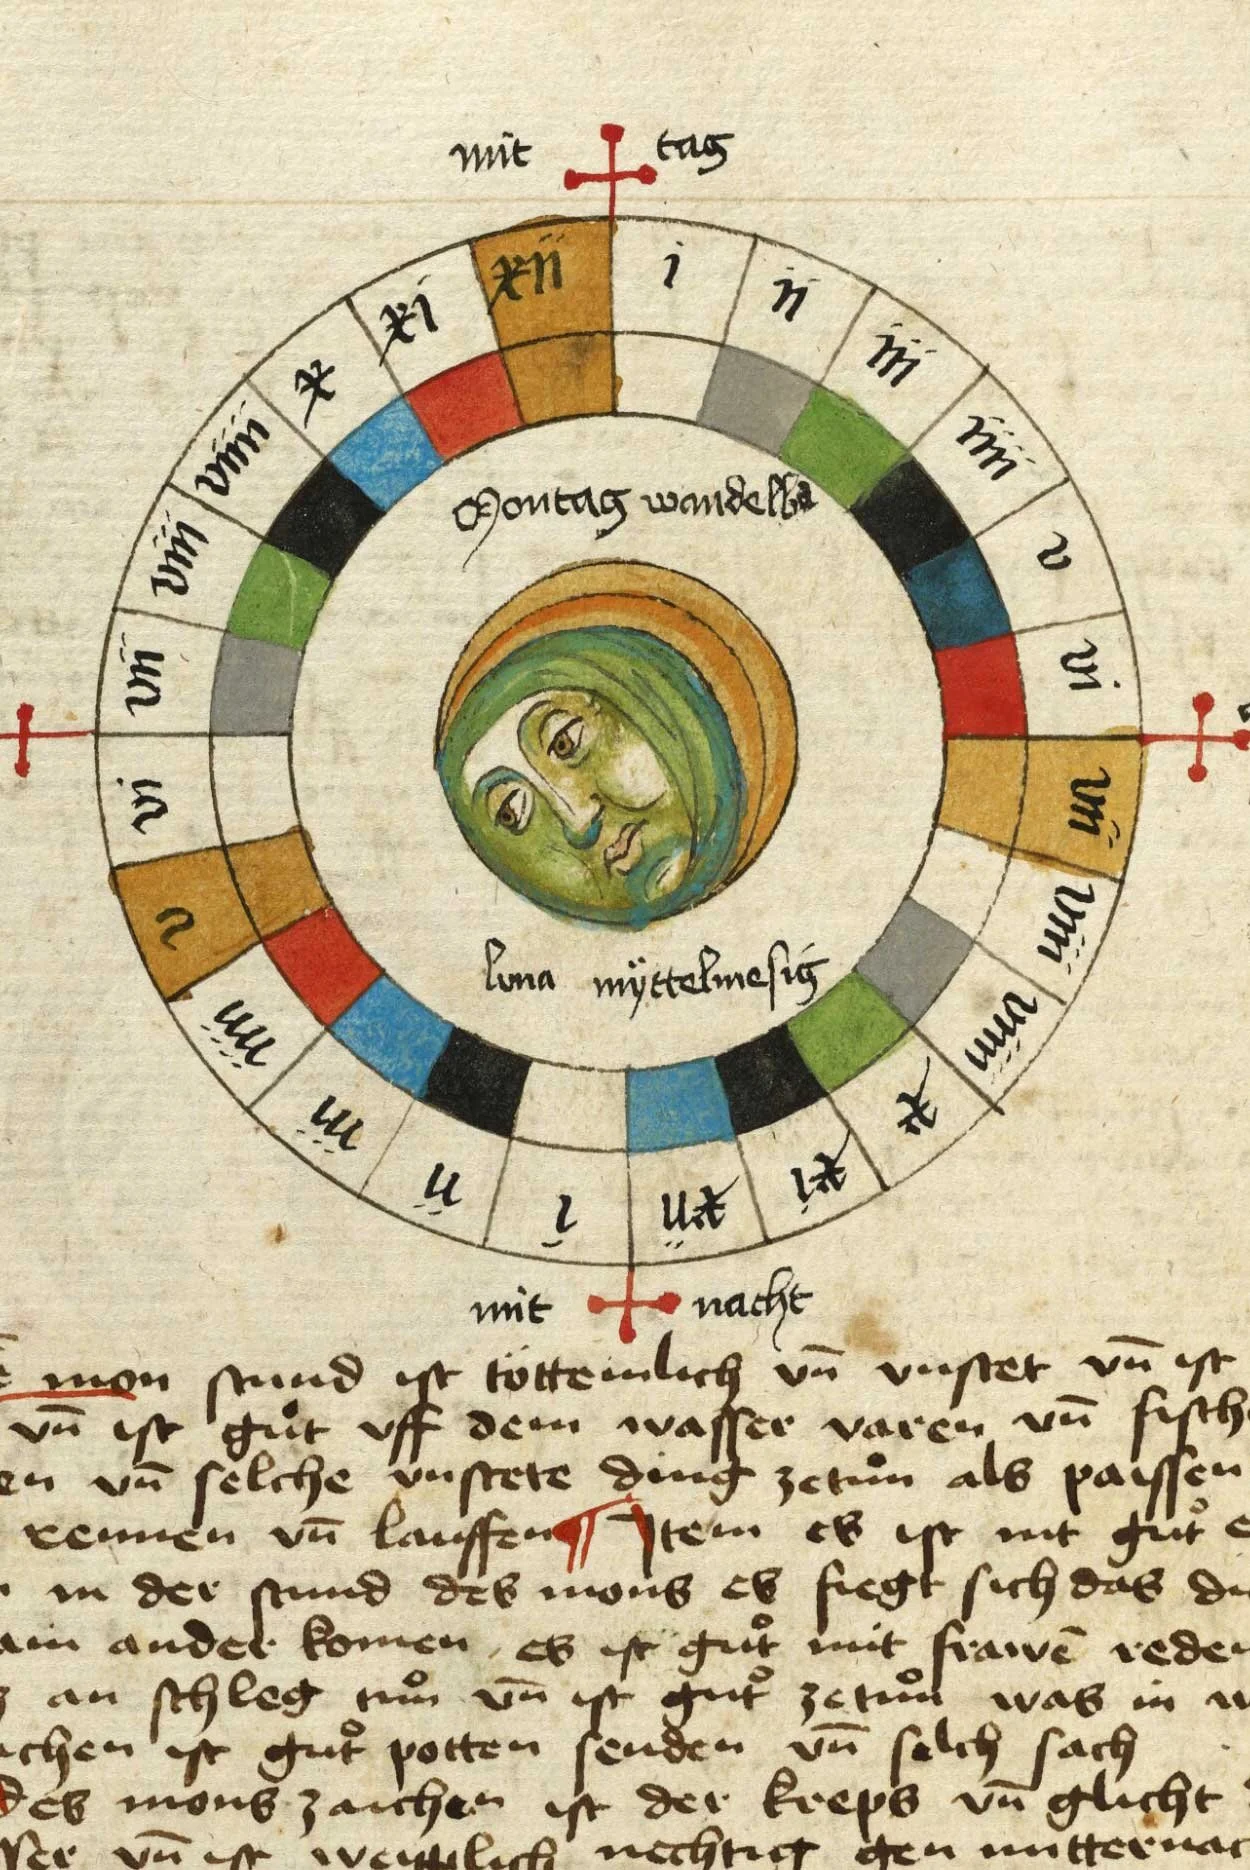 mit tag
xii i ii iii iiii v vi vii viii viiii x xi xii i ii iii iiii v vi vii viii viiii x xi
Montag wandelba
luna myttelmesig
mit nacht
mon stund ist töttemlich vn̄ vnstet vn̄ ist
vn̄ ist gůt vff dem wasser varen vn̄ fisch
en vn̄ selche vnstete ding zetůn als paissen
rennen vn̄ lauffen Item es ist nit gůt e
in der stund des mons es fiegt sich das di
ain ander komen es ist gůt mit frawē reden
an schleg tůn vn̄ ist gůt zetůn was in w
ichen ist gůt potten senden vn̄ selch sach
des mons zaichen ist der kreps vn̄ glicht
sser vn̄ ist weiplich nechtig gen mitternac